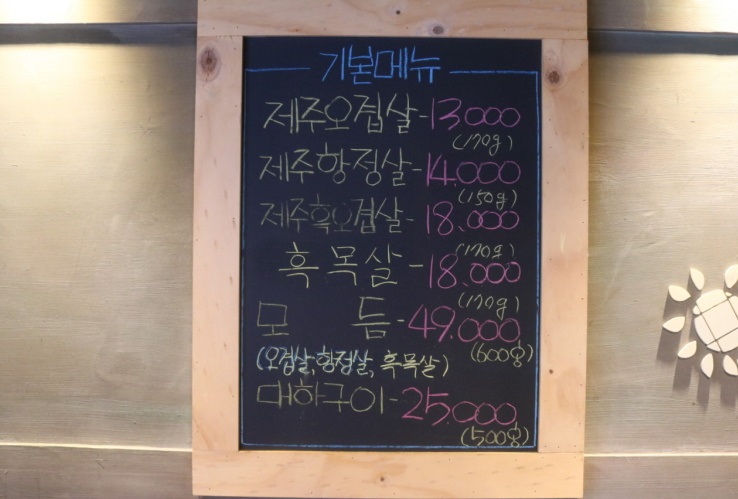 기본메뉴
제주오겹살-13.000
(170g)
제주항정살-14.000
(150g)
제주흑오겹살-18.000
(170g)
흑목살-18.000
(170g)
모 듬-49.000
(600g)
(오겹살,항정살, 흑목살)
대하구이-25.000
(500g)